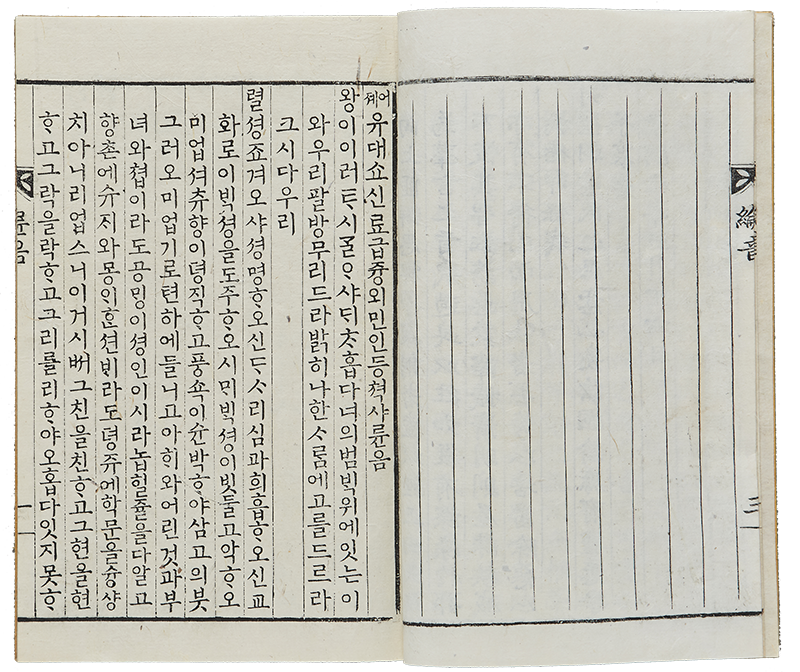 綸音
三
어졔유대쇼신료급즁외민인등쳑샤륜음
왕이이러ᄐᆞ시ᄀᆞᆯᄋᆞ샤ᄃᆡᄎᆞ홉다녀의범ᄇᆡᆨ위에잇ᄂᆞᆫ이
와우리팔방무리드라밝히나한ᄉᆞᄅᆞᆷ에고를드르라
크시다우리
렬셩죠겨오샤셩명ᄒᆞ오신ᄃᆞᄉᆞ리심과희흡ᄒᆞ오신교
화로이ᄇᆡᆨ셩을도주ᄒᆞ오시ᄆᆡᄇᆡᆨ셩이빗둘고악ᄒᆞ오
미업셔츄향이뎡직ᄒᆞ고풍쇽이슌박ᄒᆞ야삼고의붓
그러오미업기로텬하에들니고아ᄒᆡ와어린것과부
녀와쳡이라도공ᄆᆡᆼ이셩인이시라놉힐쥴을다알고
향촌에슈지와몽ᄋᆡᄒᆞᆫ션ᄇᆡ라도뎡쥬에학문을슝샹
치아니리업스니이거시ᄡᅥ그친을친ᄒᆞ고그현을현
ᄒᆞ고그락을락ᄒᆞ고그리를리ᄒᆞ야오홉다잇지못ᄒᆞ
륜음
一